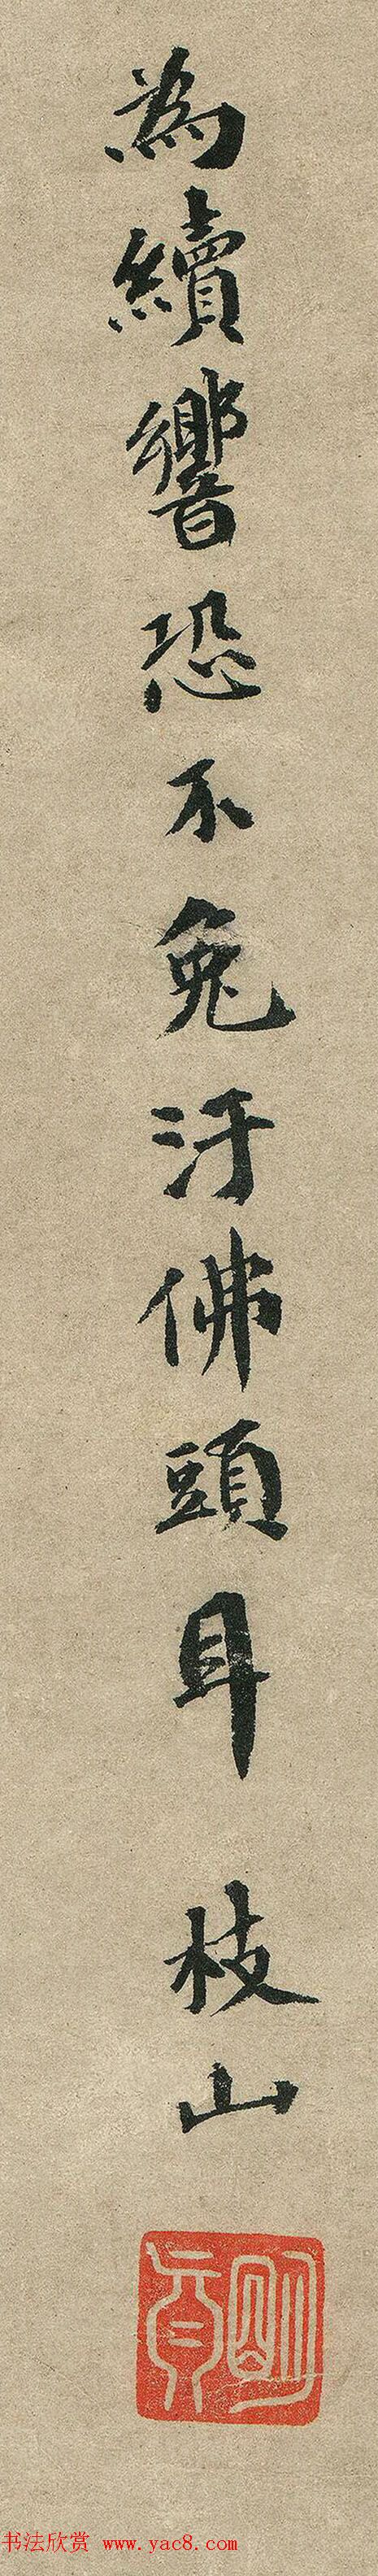 為續響恐不免汙佛頭耳 枝山
明貞
书法欣赏 www.yac8.com